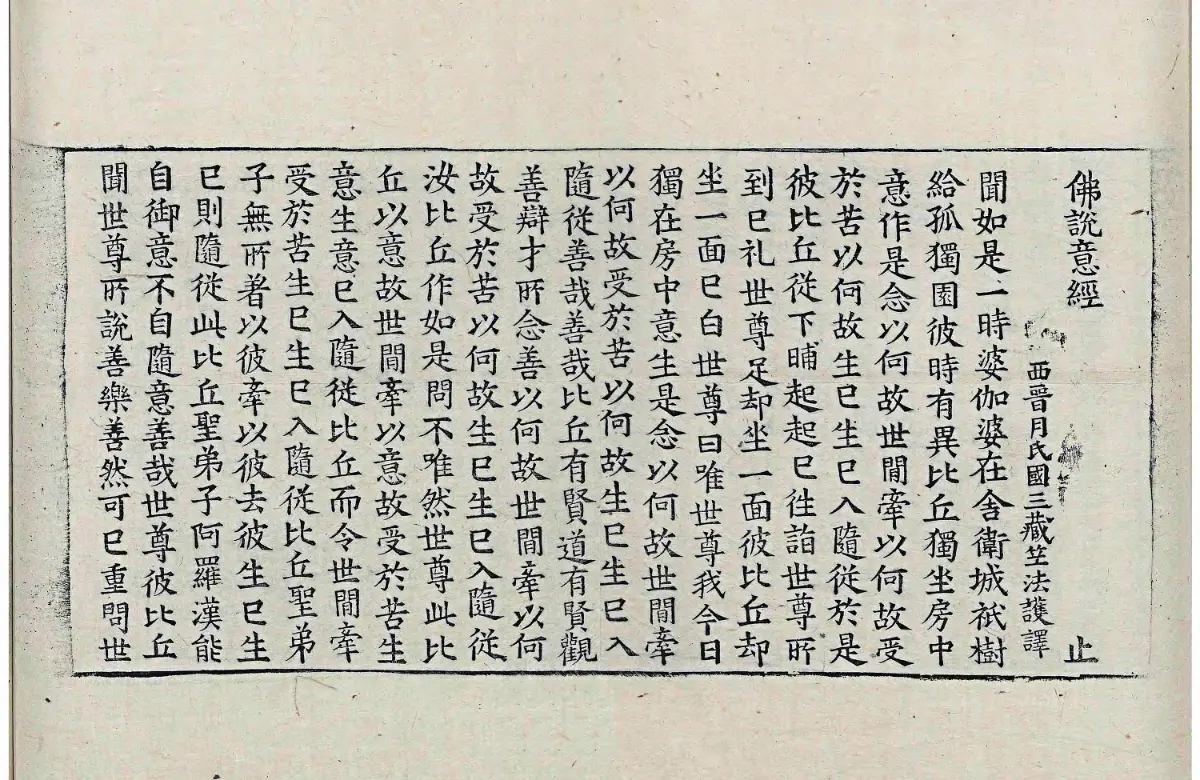 佛說意經 止
西晉月氏國三藏竺法護譯
聞如是一時婆伽婆在舍衛城祇樹
給孤獨園彼時有異比丘獨坐房中
意作是念以何故世間牽以何故受
於苦以何故生已生已入隨從於是
彼比丘從下晡起起已往詣世尊所
到已礼世尊足却坐一面彼比丘却
坐一面已白世尊曰唯世尊我今日
獨在房中意生是念以何故世間牽
以何故受於苦以何故生已生已入
隨從善哉善哉比丘有賢道有賢觀
善辯才所念善以何故世間牽以何
故受於苦以何故生已生已入隨從
汝比丘作如是問不唯然世尊此比
丘以意故世間牽以意故受於苦生
意生意已入隨從比丘而令世間牽
受於苦生已生已入隨從比丘聖弟
子無所著以彼牽以彼去彼生已生
已則隨從此比丘聖弟子阿羅漢能
自御意不自隨意善哉世尊彼比丘
聞世尊所說善樂善然可已重問世